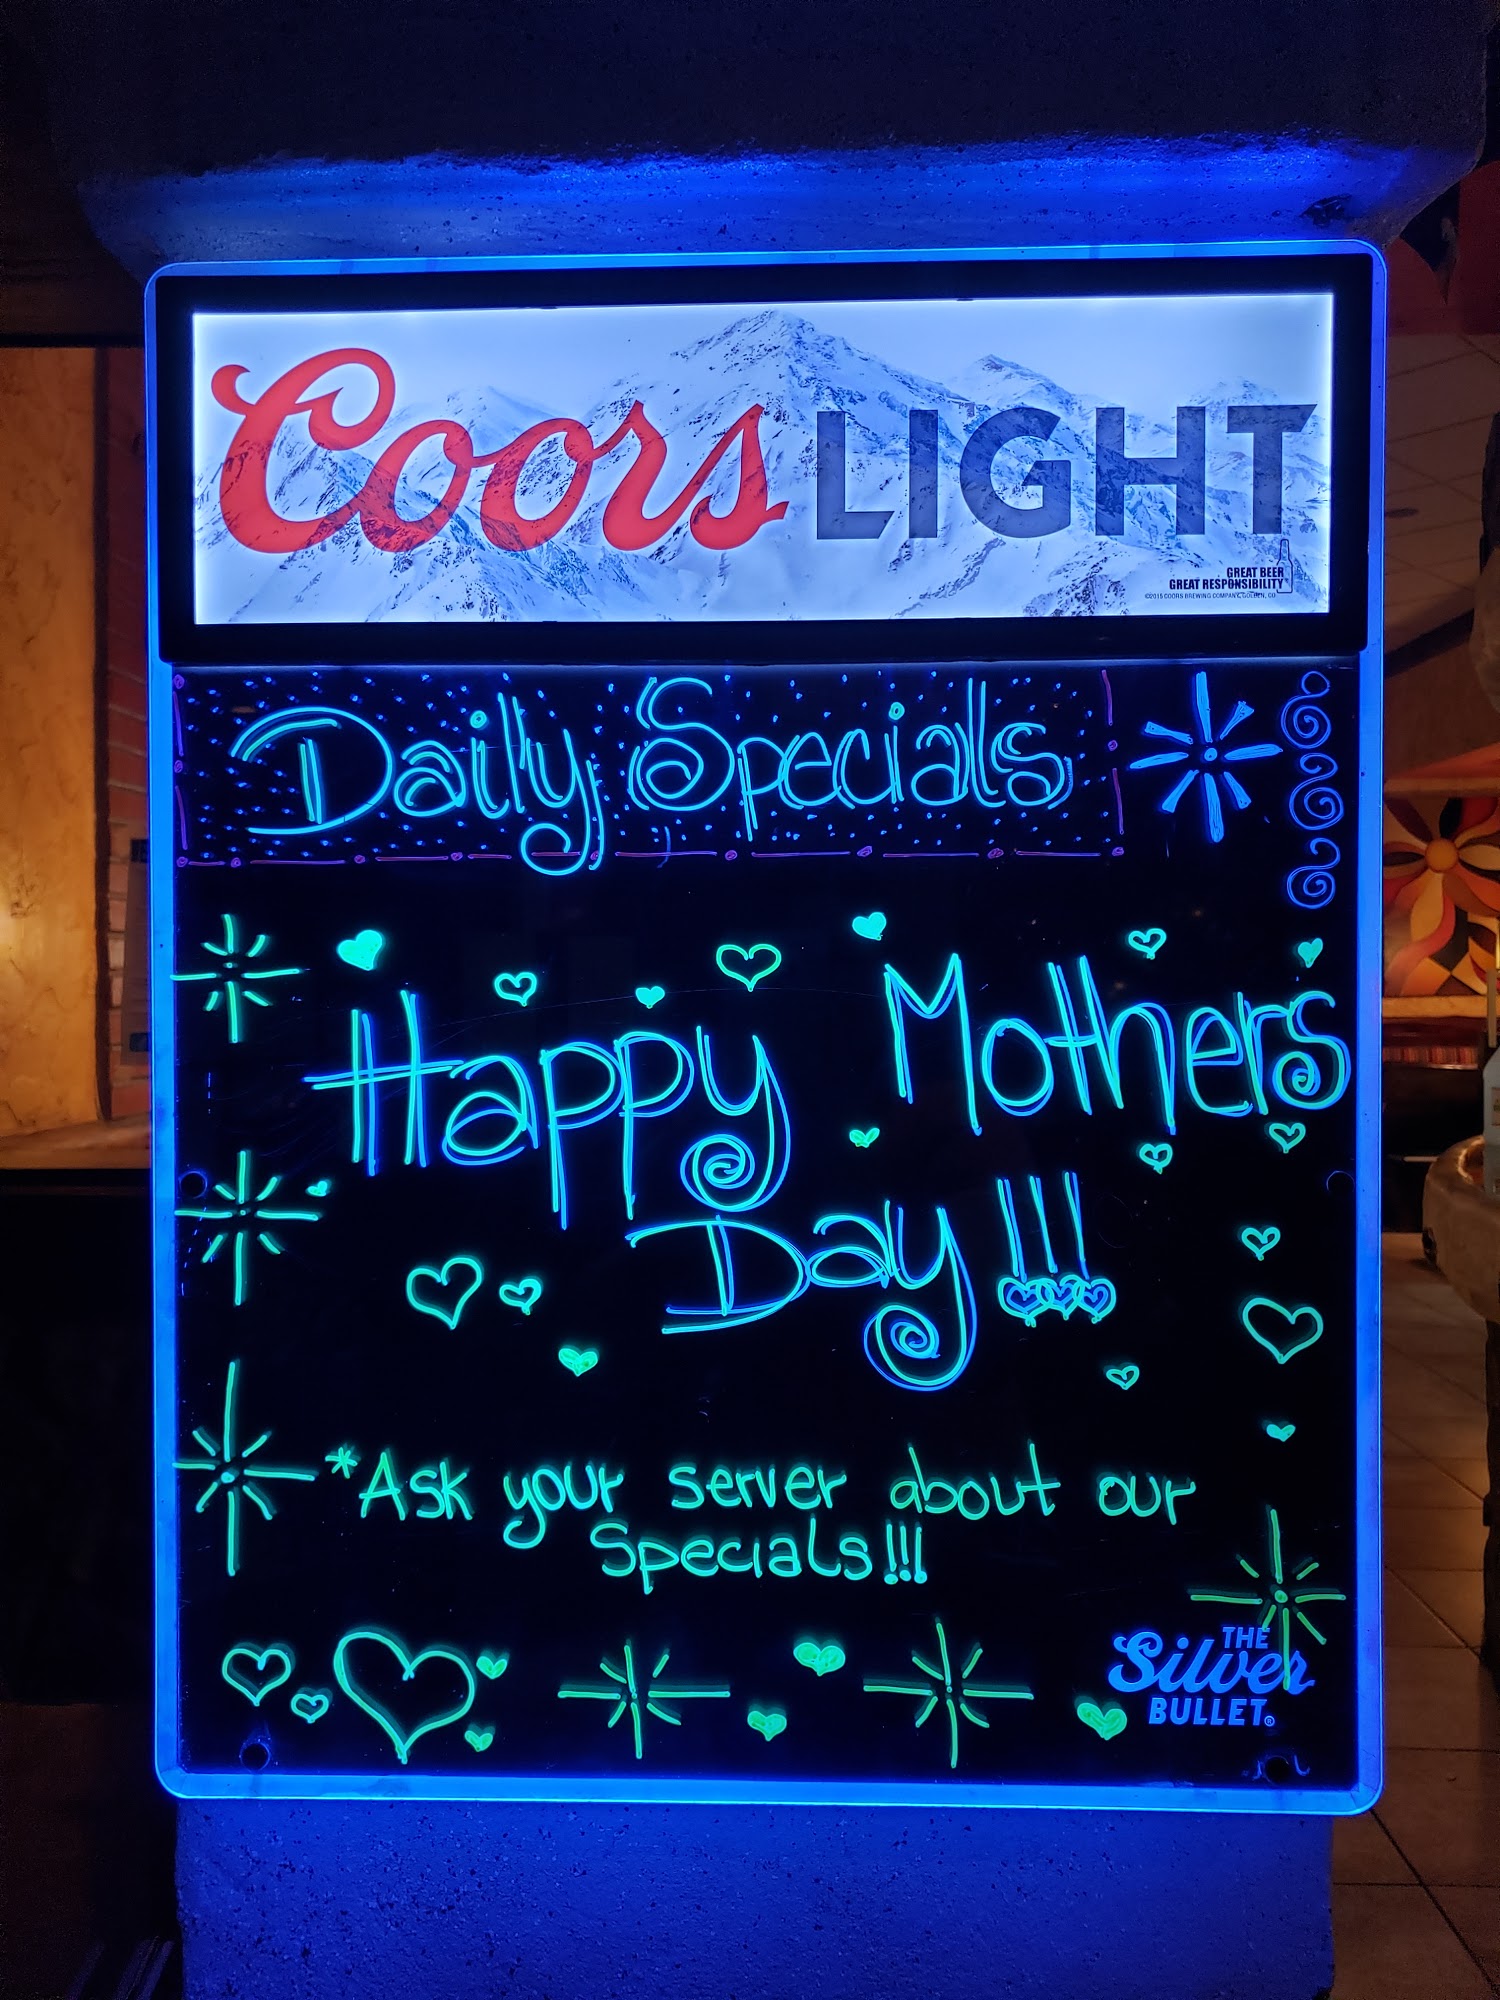 Coors LIGHT
GREAT BEER
GREAT RESPONSIBILITY
©2015 COORS BREWING COMPANY, GOLDEN, CO
Daily Specials
Happy Mothers
Day!!!
*Ask your server about our
Specials!!!
THE
Silver
BULLET®